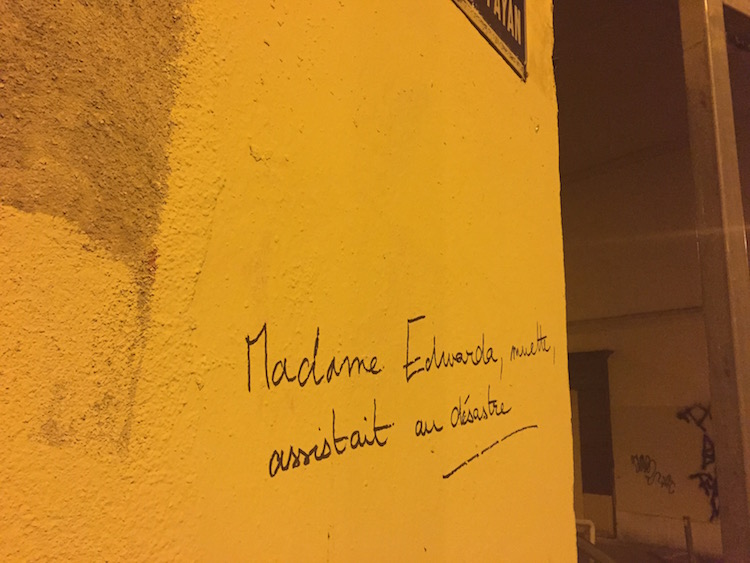 PAYAN
Madame Edwarda, muette,
assistait au désastre